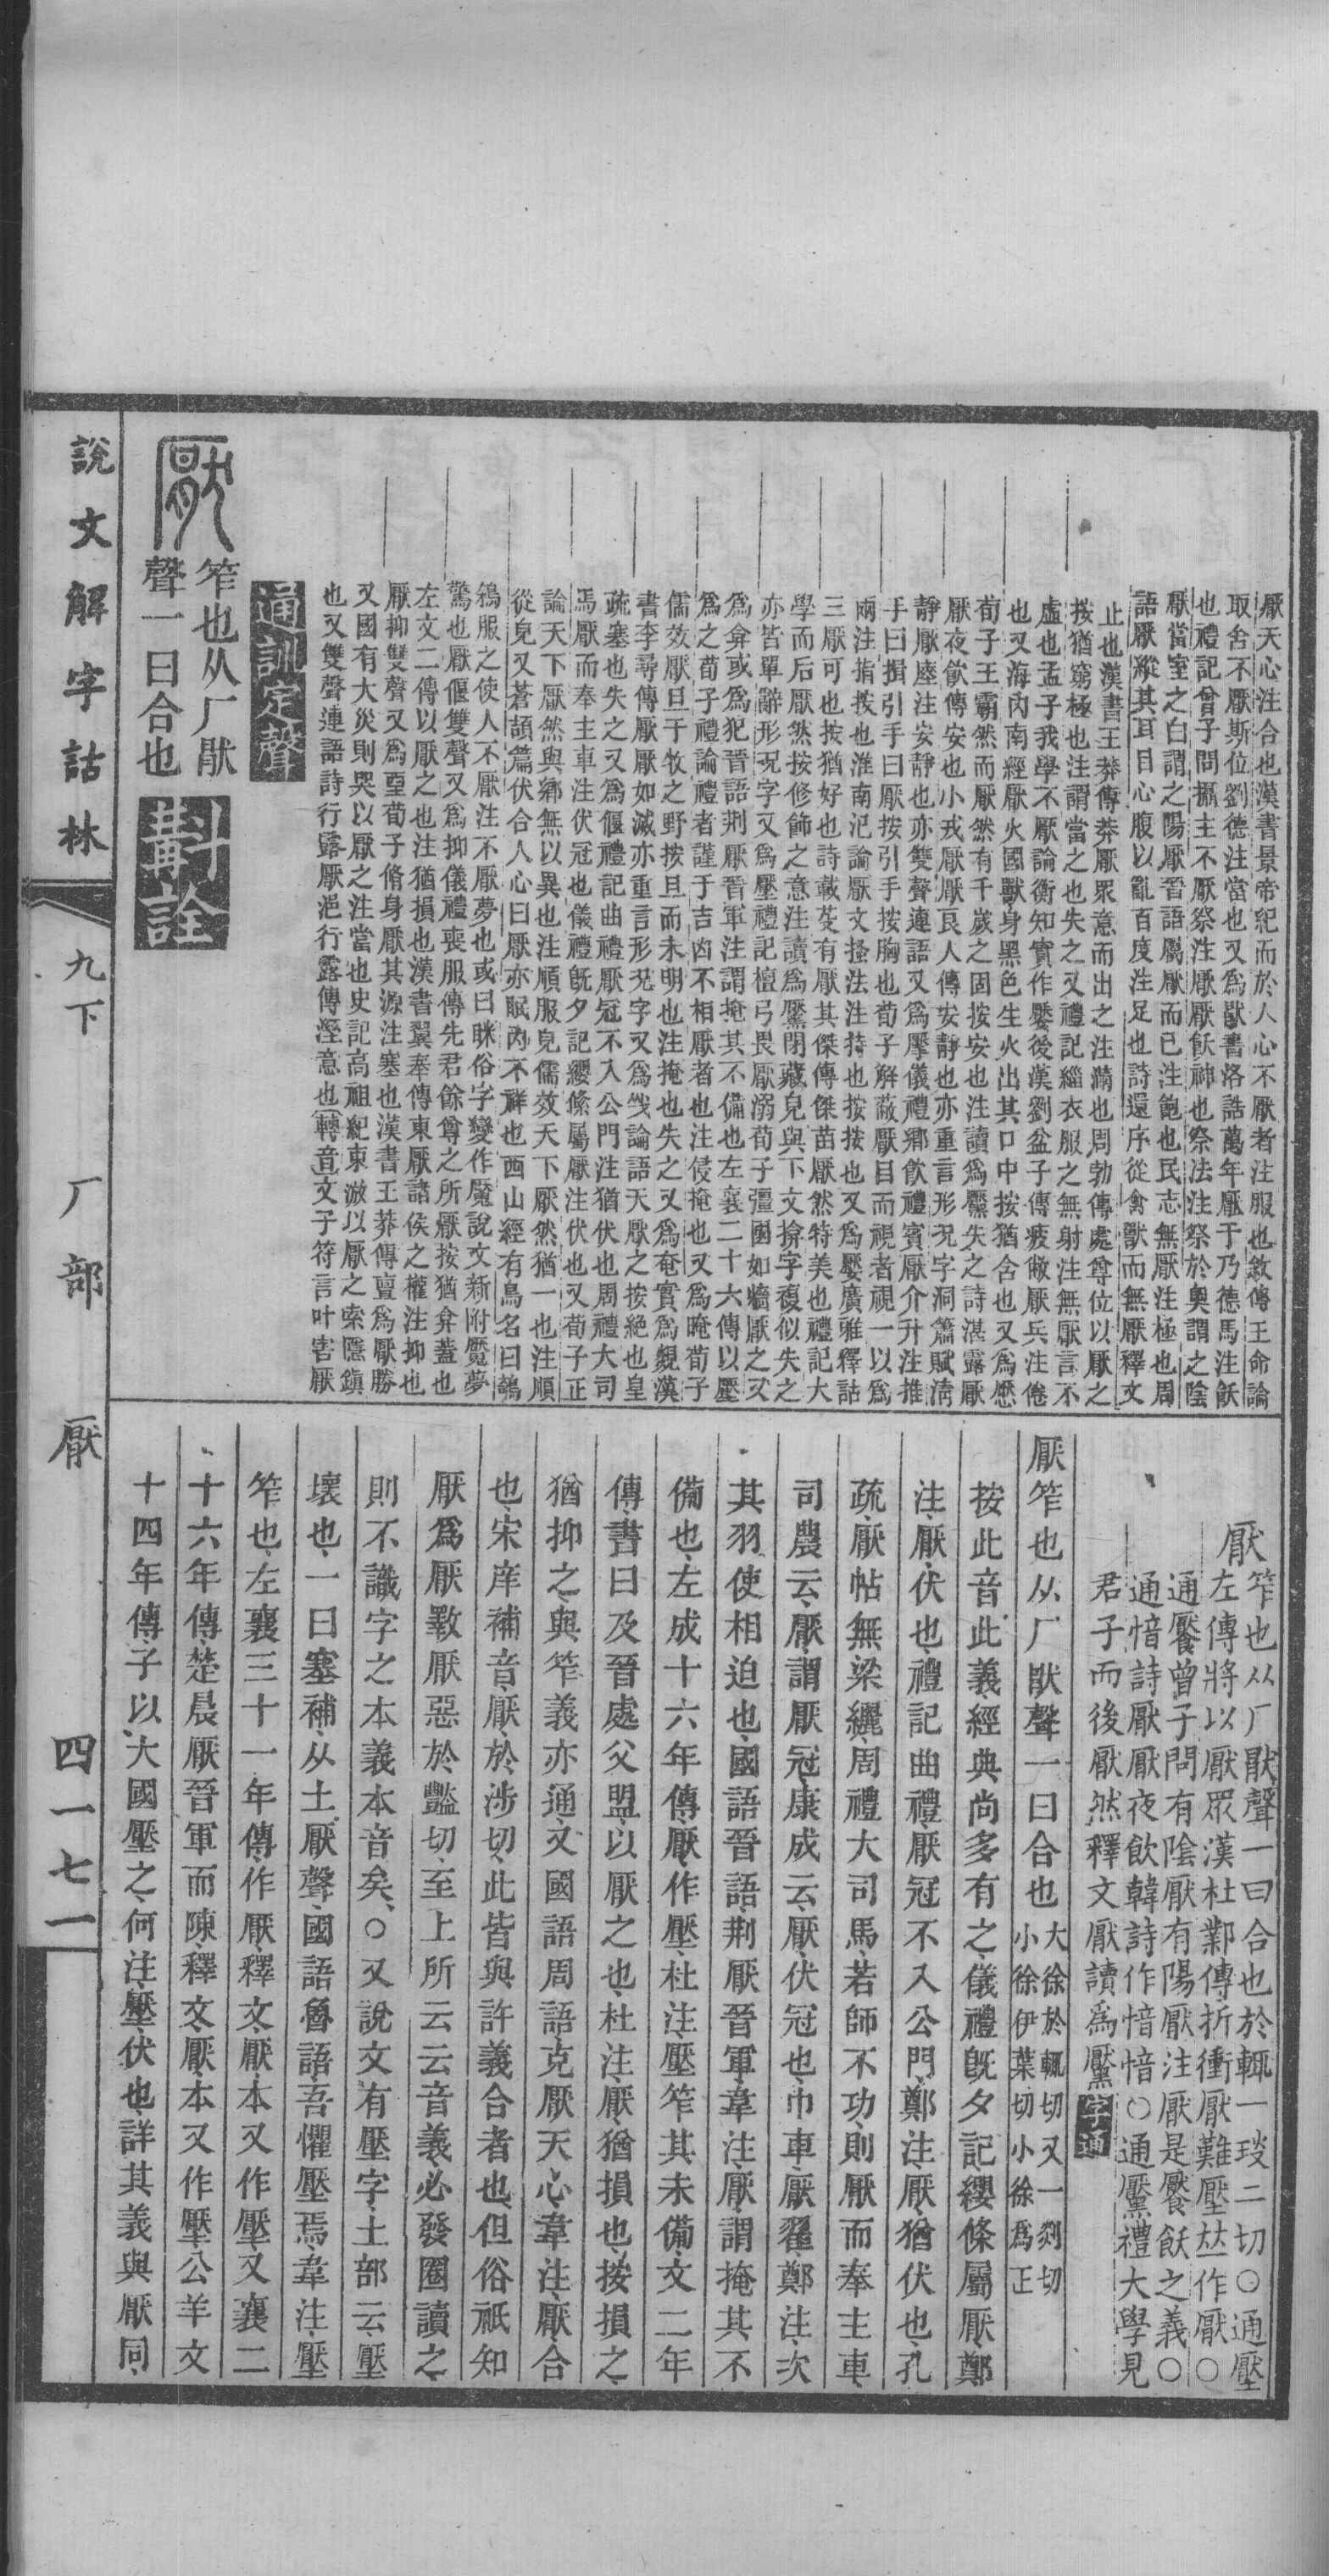 厭天心注合也漢書景帝紀而於人心不厭者注服也敘傳王命論
取舍不厭斯位劉德注當也又爲猒書洛誥萬年厭于乃德馬注飫
也禮記曾子問攝主不厭祭注厭厭飫神也祭法注祭於奧謂之陰
厭當室之白謂之陽厭晉語屬厭而已注飽也民志無厭注極也周
語厭縱其耳目心腹以亂百度注足也詩還序從禽獸而無厭釋文
止也漢書王莽傳莽厭眾意而出之注滿也周勃傳處尊位以厭之
按猶窮極也注謂當之也失之又禮記緇衣服之無射注無厭言不
虛也孟子我學不厭論衡知實作饜後漢劉盆子傳疲敝厭兵注倦
也又海內南經厭火國獸身黑色生火出其口中按猶含也又爲懕
荀子王霸然而厭然有千歲之固按安也注讀爲黶失之詩湛露厭
厭夜飲傳安也小戎厭厭良人傳安靜也亦重言形況字洞簫賦清
靜厭㥷注安靜也亦雙聲連語又爲擪儀禮鄉飲禮賓厭介升注推
手曰揖引手曰厭按引手按胸也荀子解蔽厭目而視者視一以爲
兩注指按也淮南氾論厭文搔法注持也按按也又爲嬮廣雅釋詁
三厭可也按猶好也詩載芟有厭其傑傳傑苗厭然特美也禮記大
學而后厭然按修飾之意注讀爲黶閉藏皃與下文揜字複似失之
亦皆單辭形況字又爲壓禮記檀弓畏厭溺荀子彊國如牆厭之又
爲弇或爲犯晉語荆厭晉軍注謂掩其不備也左襄二十六傳以壓
爲之荀子禮論禮者謹于吉凶不相厭者也注侵掩也又爲晻荀子
儒效厭旦于牧之野按旦而未明也注掩也失之又爲奄實爲覝漢
書李尋傳厭厭如滅亦重言形況字又爲㦰論語天厭之按絕也皇
疏塞也失之又爲偃禮記曲禮厭冠不入公門注猶伏也周禮大司
馬厭而奉主車注伏冠也儀禮既夕記纓條屬厭注伏也又荀子正
論天下厭然與鄉無以異也注順服皃儒效天下厭然猶一也注順
從皃又蒼頡篇伏合人心曰厭亦眠內不祥也西山經有鳥名曰鵸
鵌服之使人不厭注不厭夢也或曰眯俗字變作魘說文新附魘夢
驚也厭偃雙聲又爲抑儀禮喪服傳先君餘尊之所厭按猶弇蓋也
左文二傳以厭之也注猶損也漢書翼奉傳東厭諸侯之權注抑也
厭抑雙聲又爲垔荀子脩身厭其源注塞也漢書王莽傳亶爲厭勝
又國有大災則哭以厭之注當也史記高祖紀東游以厭之索隱鎮
也又雙聲連語詩行露厭浥行露傳溼意也轉音文子符言叶害厭
通訓定聲
厭 笮也从厂猒
聲一曰合也 斠詮
厭 笮也从厂猒聲一曰合也於輒一琰二切○通壓
左傳將以厭眾漢杜鄴傳折衝厭難壓𠀤作厭○
通饜曾子問有陰厭有陽厭注厭是饜飫之義○
通愔詩厭厭夜飲韓詩作愔愔○通黶禮大學見
君子而後厭然釋文厭讀爲黶 字通
厭笮也从厂猒聲一曰合也 大徐於輒切又一剡切
小徐伊葉切小徐爲正
按此音此義經典尚多有之儀禮旣夕記纓條屬厭鄭
注厭伏也禮記曲禮厭冠不入公門鄭注厭猶伏也孔
疏厭帖無梁纚周禮大司馬若師不功則厭而奉主車
司農云厭謂厭冠康成云厭伏冠也巾車厭翟鄭注次
其羽使相迫也國語晉語荆厭晉軍韋注厭謂掩其不
備也左成十六年傳厭作壓杜注壓笮其未備文二年
傳書曰及晉處父盟以厭之也杜注厭猶損也按損之
猶抑之與笮義亦通又國語周語克厭天心韋注厭合
也宋庠補音厭於涉切此皆與許義合者也但俗祇知
厭爲厭斁厭惡於豔切至上所云云音義必發圈讀之
則不識字之本義本音矣○又說文有壓字土部云壓
壞也一曰塞補从土厭聲國語魯語吾懼壓焉韋注壓
笮也左襄三十一年傳作厭釋文厭本又作壓又襄二
十六年傳楚晨厭晉軍而陳釋文厭本又作壓公羊文
十四年傳子以大國壓之何注壓伏也詳其義與厭同
說文解字詁林 九下 厂部 厭 四一七一